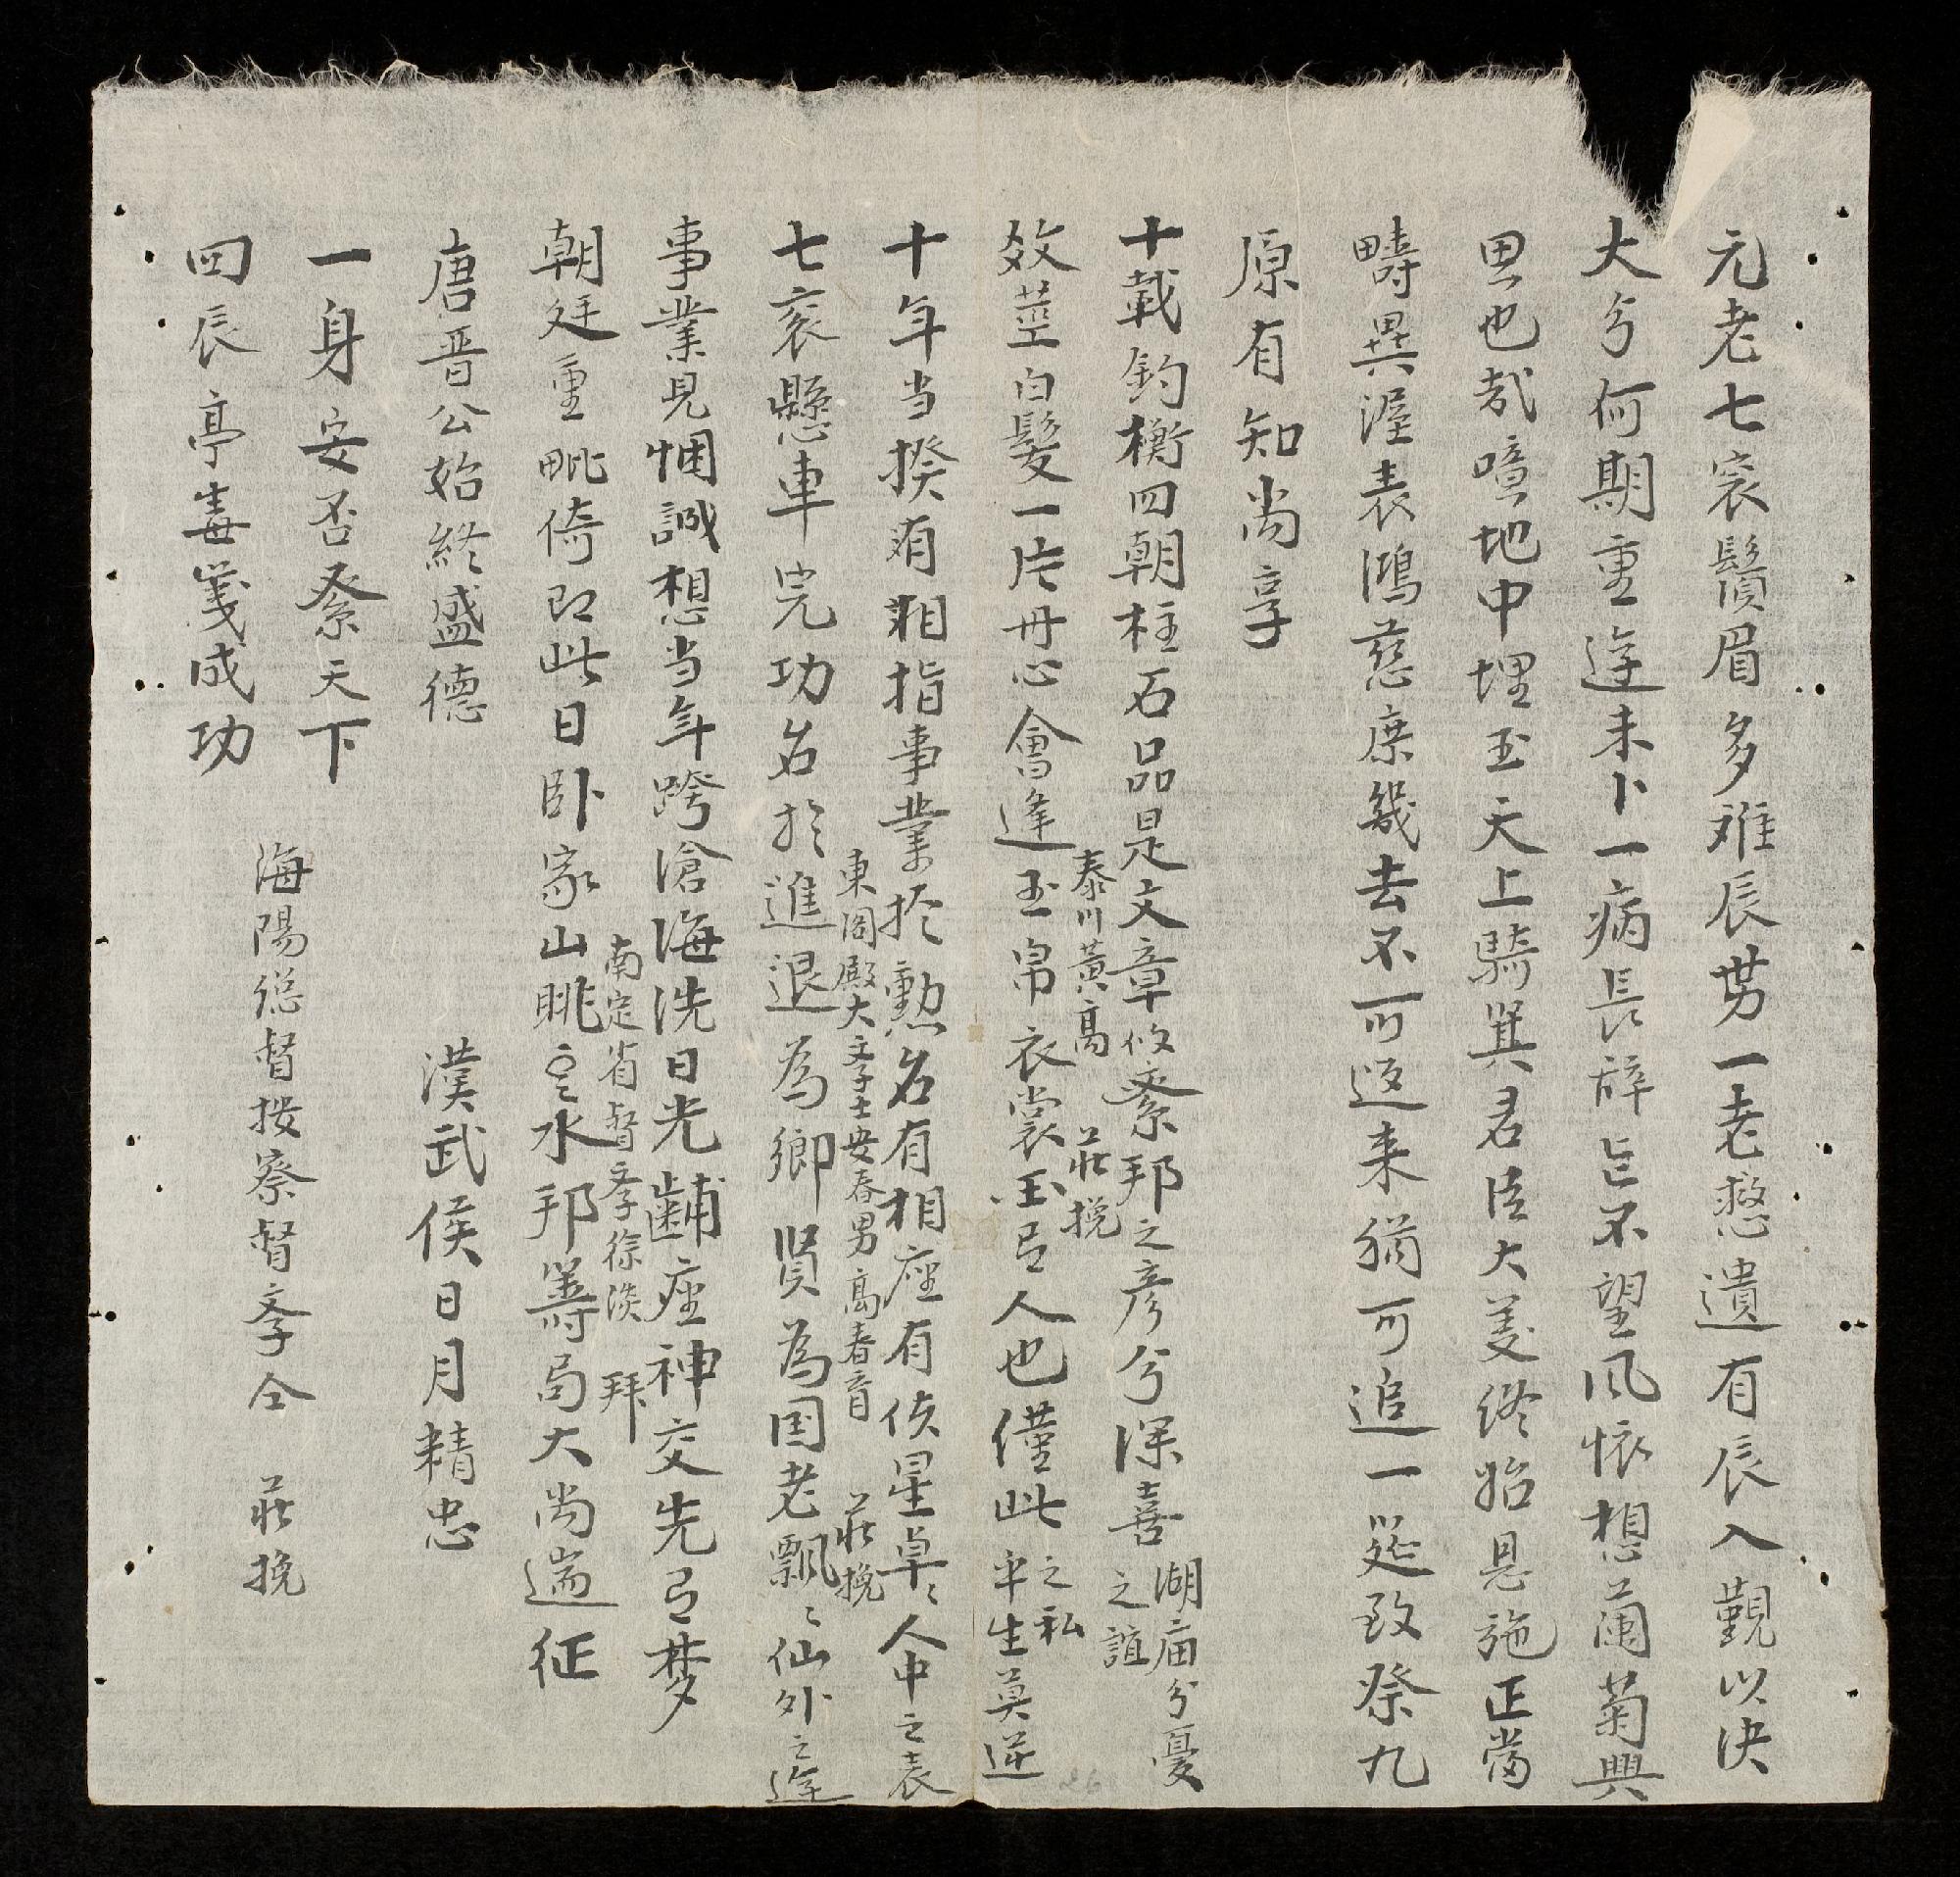 元老七袠鬚眉多难辰势一老憖遺有辰入覲以决
大兮何期重逢未卜一病長辞旨不望风怀想蘭菊興
思也哉噫地中埋玉天上騎箕君臣大义终始恩施正當
疇異渥表鴻慈庶幾去不可返来猶可追一筵致祭九
原有知尚享
十載鈞衡四朝柱石品是文章攸系邦之彥兮深喜湖庙分憂之誼
效莖白髮一片丹心會逢玉帛衣裳玉吊人也僅此之私平生莫逆
泰川黃高 莊挽
十年当揆有相指事業於勲名有相座有侁星卓〻人中之表
七袠懸車完功名於進退為鄉賢為国老飄〻仙外之逢
東閣殿大学士安春男高春育 莊挽
事業見悃誠想当年跨滄海洗日光黼座神交先弓梦
朝廷重毗倚即此日卧家山眺雲水邦籌局大尚遄征
南定省督学徐淡 拜
唐晋公始終盛德
漢武侯日月精忠
一身安否系天下
四辰亭毒笺成功
海陽總督按察督学仝 莊挽